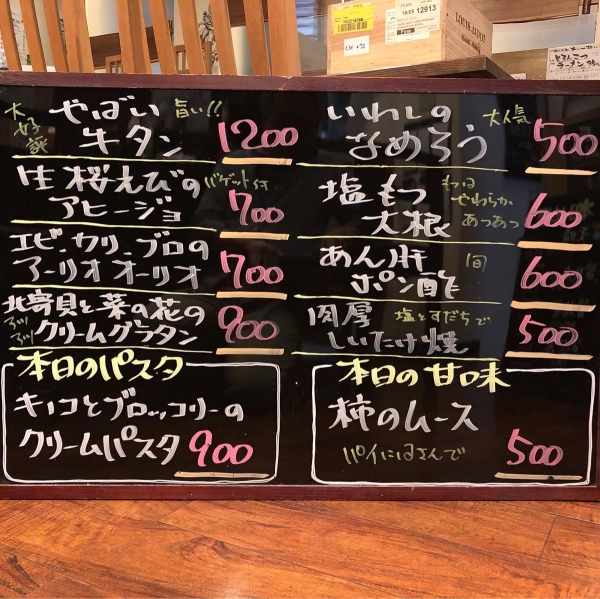 大好評 やばい 旨い!!
牛タン 1200
生桜えびの バゲット付
アヒージョ 700
エビ、カリ、ブロの
アーリオオーリオ 700
北寄貝と菜の花の
クリームグラタン 900
本日のパスタ
キノコとブロッコリーの
クリームパスタ 900
いわしの 大人気
なめろう 500
塩もつ もつは
大根 やわらか
あつあつ 600
あん肝 旬
ポン酢 600
肉厚 塩とすだちで
しいたけ焼 500
本日の甘味
柿のムース
パイにはさんで 500
LOUIS JADOT
12913
とんこつ
ラーメン